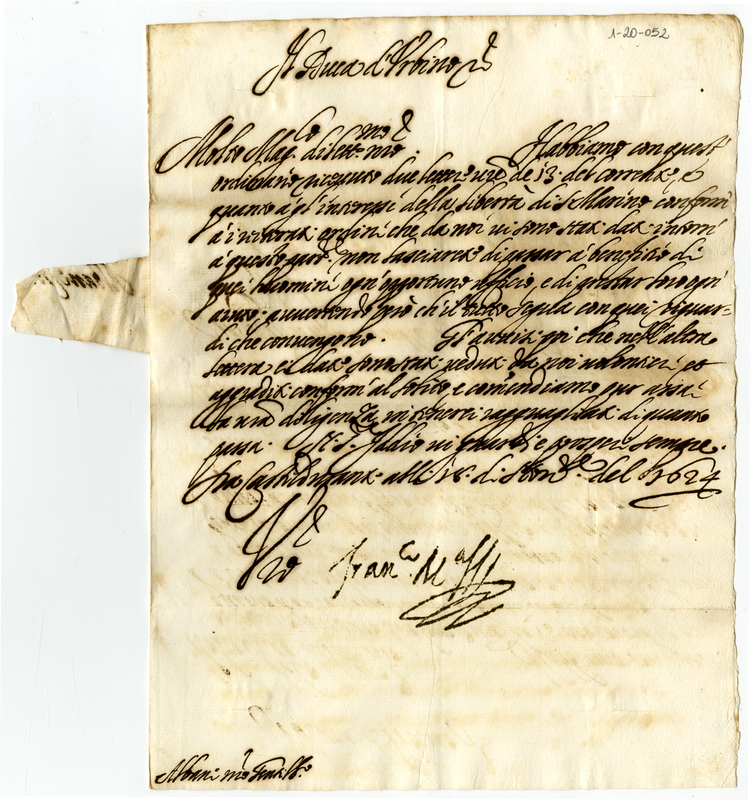 1-20-052
Il Duca d'Urbino etc
Molto Mag.co dilett.mo n̄ro. Habbiamo con quest'
ordinario ricevuto due lettere vr̄e de 13 del corrente, e
quanto à gl'interessi della libertà di S. Marino conform'
à ordini che da noi vi sono stati dati intorni
à questo non lasciarete di passar à benefitio di
quei huomini ogn'opportuno uffitio, e di prestar loro ogni
aiuto; avvertendo però ch'il tutto segua con quei riguar-
di che convengono. Gl'avvisi poi che nell'altra
lettera ci date sono stati veduti da noi volentieri, et
conform' al solito e commendiamo pur assai
la vr̄a diligenza in tenerci ragguagliati di quanto
passa. Et Iddio vi guardi e prosperi sempre.
Da Casteldurante alli 18 di del 1624
Vr̄o
Fran.co M.a
Albani n̄ro